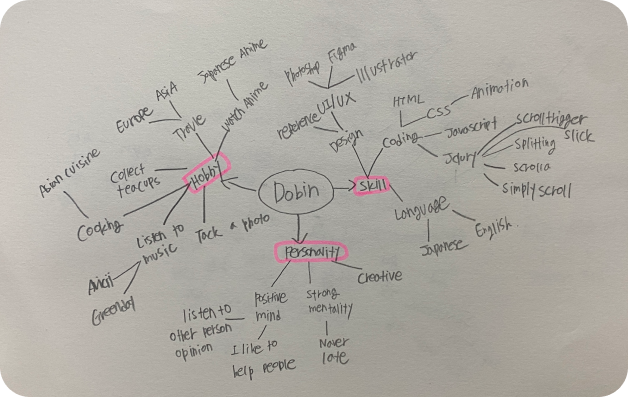 Dobin
Hobby
Travle
Europe
AsiA
watch Anime
Japanese Anime
Collect
teacups
Cooking
Asian cuisine
Listen to
music
Avicii
Greenday
Tack a photo
Skill
Design
reference
UI/UX
Photoshop
Figma
Illustrator
Coding
HTML
CSS
Animation
Javascript
Jqury
scrolltrigger
slick
splitting
scrolla
simply scroll
Language
Japanese
English.
Personality
Positive
mind
listen to
other person
opinion
I like to
help people
strong
mentality
Never
late
Creative